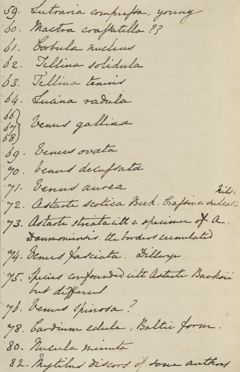 59. Lutraria compressa, young
60. Mactra crassatella ??
61. Corbula nucleus
62. Tellina solidula
63. Tellina tenuis
64. Lucina radula
66
67 } Venus gallina
68
69. Venus ovata
70. Venus decussata
71. Venus aurea
72. Astarte scotica Bech. Crassina
73. Astarte striata with a specimen of A.
Danmoniensis, the borders crenulated
74. Venus fasciata. Dillwyn
75. Species confounded with Astarte Banksii
but different
76. Venus spinosa?
78. Cardium edule. Baltic form.
80. Nucula minuta
82. Mytilus discors of some authors